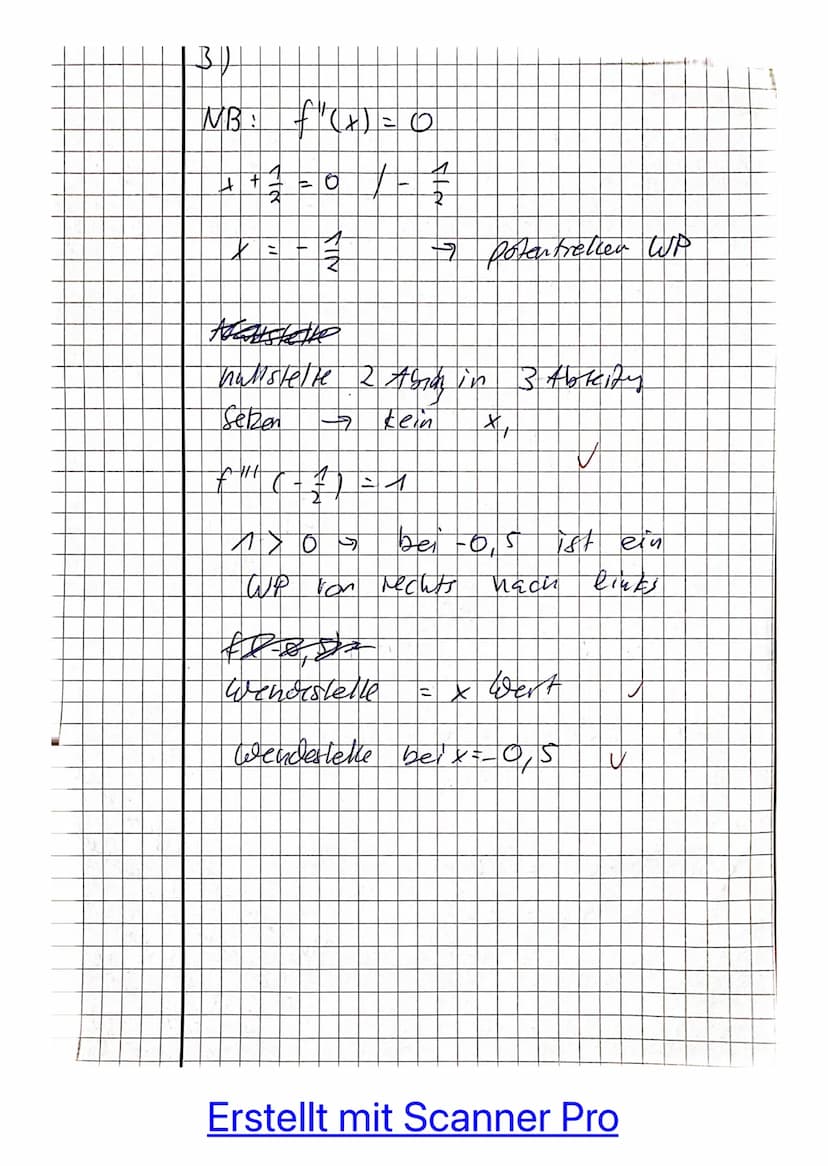 3)
NB: f''(x) = 0
x + 1/2 = 0 / - 1/2
x = - 1/2 → potentiellen WP
nullstelle 2 in 3 Ableitg
setzen → kein x,
✓
f''' (- 1/2) = 1
1 > 0 → bei -0,5 ist ein
WP von rechts nach links
Wendestelle = x Wert ✓
Wendestelle bei x=-0,5 ✓
Erstellt mit Scanner Pro